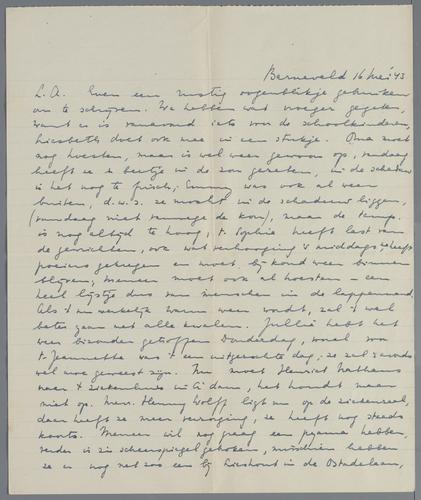 Barneveld 16 Mei '43
L.A. Even een rustig oogenblikje gebruiken
om te schrijven. We hebben wat vroeger gegeten,
want er is vanavond iets voor de schoolkinderen,
Liesbeth doet ook mee in een stukje. Oma moet
nog hoesten, maar is wel weer gewoon op, vandaag
heeft ze 'n beetje in de zon gezeten, in de schaduw
is het nog te frisch; Emmy was ook al weer
buiten, d.w.z. ze mocht in de schaduw liggen,
(vandaag niet vanwege de kou), maar de temp.
is nog altijd te hoog; t. Sophie heeft last van
de gewrichten, ook wat verhooging 's middags, heeft
poeiers gekregen en moet bij koud weer binnen
blijven; Meneer moet ook al hoesten – een
heel lijstje dus van menschen in de lappenmand.
Als 't nu werkelijk warm weer wordt, zal 't wel
beter gaan met alle kwalen. Jullie hebt het
weer bizonder getroffen Donderdag, vooral voor
t. Jeannette was 't een uitgezochte dag; ze zal 's avonds
wel moe geweest zijn. Nu moet Henriet
naar 't ziekenhuis in A'dam, het houdt maar
niet op. Mevr. Henny Wolff ligt nu op de ziekenzaal,
daar heeft ze meer verzorging, ze heeft nog steeds
koorts. Meneer wil nog graag een pyama hebben,
verder is z'n scheerspiegel gebroken, misschien hebben
ze er nog net zoo een bij Lieshout in de Ostadelaan,